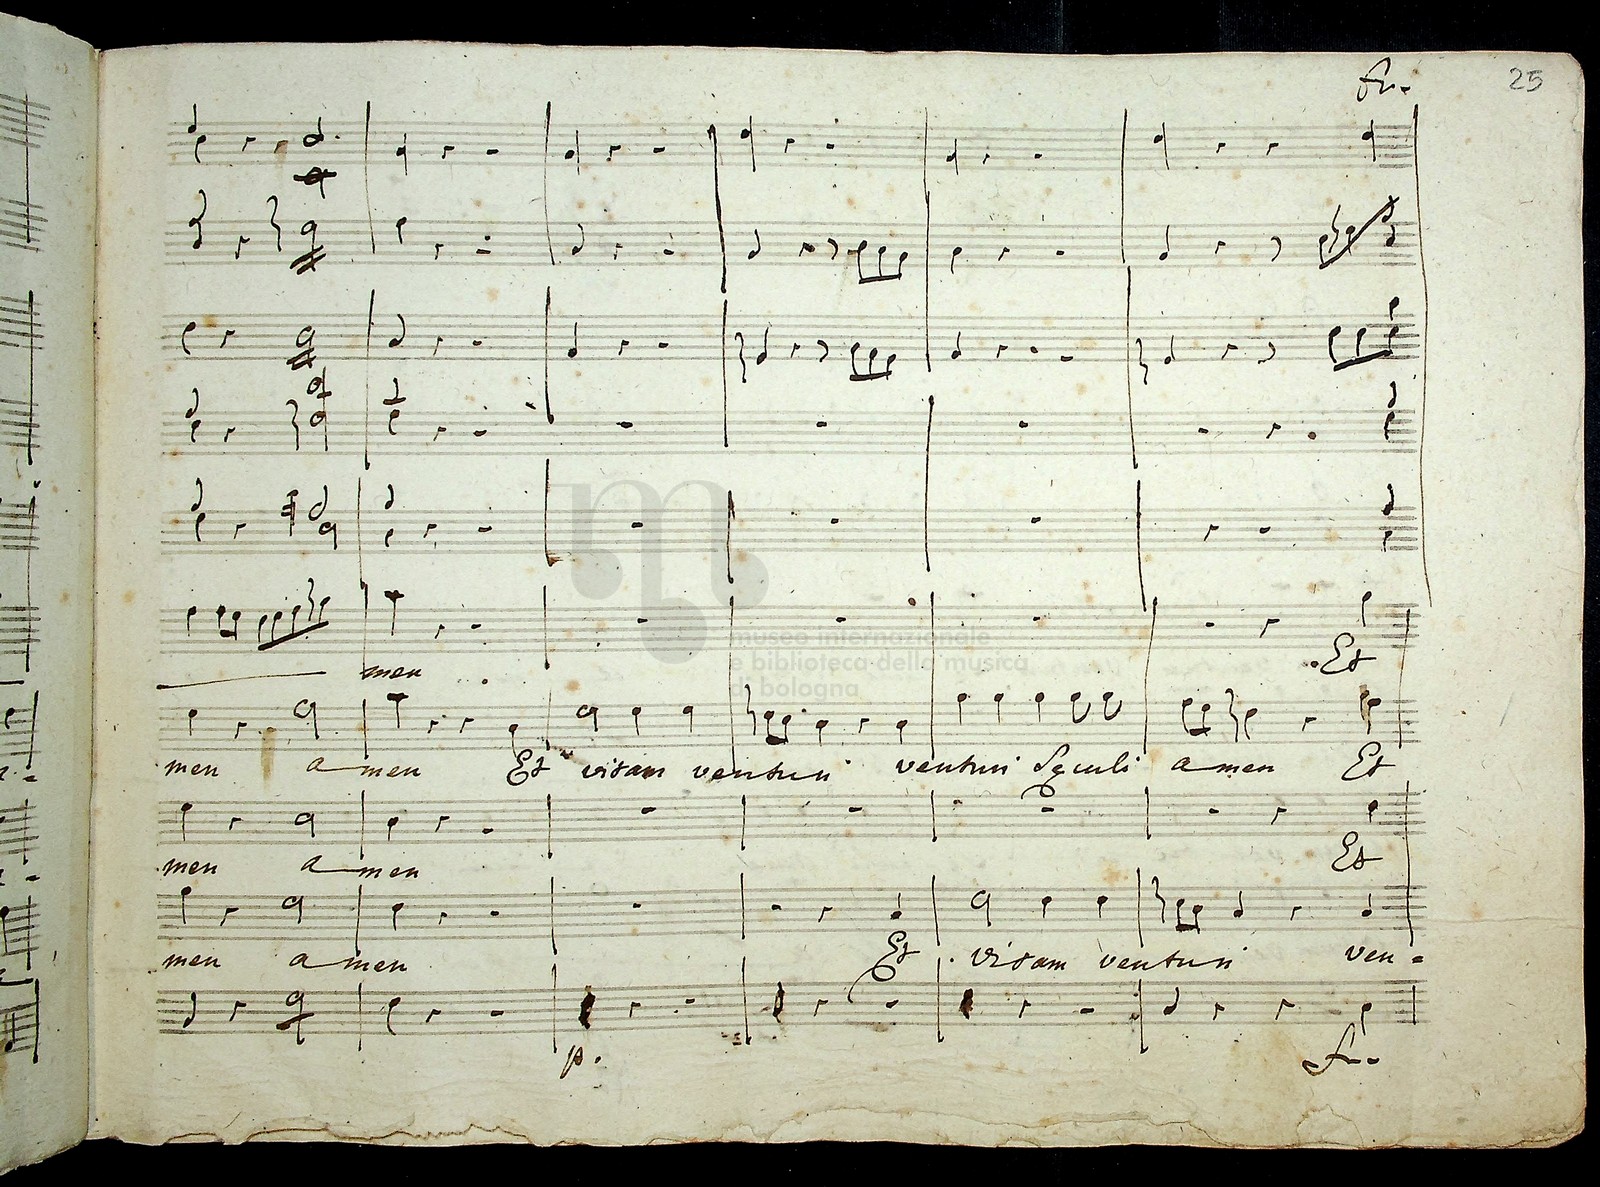 25
men
Et
museo internazionale
e biblioteca della musica
di bologna
men a men Et vitam venturi venturi Seculi a men Et
men a men Et
men a men Et vitam venturi ven=
p.